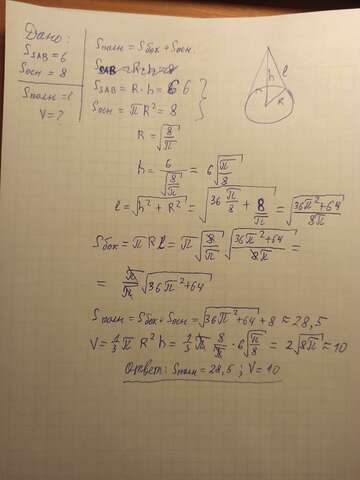 Дано:
S_SAB = 6
S_осн = 8
S_полн = ?
V = ?
S_полн = S_бок + S_осн.
S_SAB = R·h = 8
S_SAB = R·h = 6 6
S_осн = πR² = 8
R = √(8/π)
h = 6/√(8/π) = 6√(π/8)
l = √(h² + R²) = √(36 π/8 + 8/π) = √((36π² + 64)/8π)
S_бок = πRl = π√(8/π) √((36π² + 64)/8π) =
= π/π √(36π² + 64)
S_полн = S_бок + S_осн = √(36π² + 64) + 8 ≈ 28,5
V = 1/3 π R² h = 1/3 π 8/π · 6√(π/8) = 2√(8π) ≈ 10
Ответ: S_полн = 28,5 ; V = 10
h
l
R